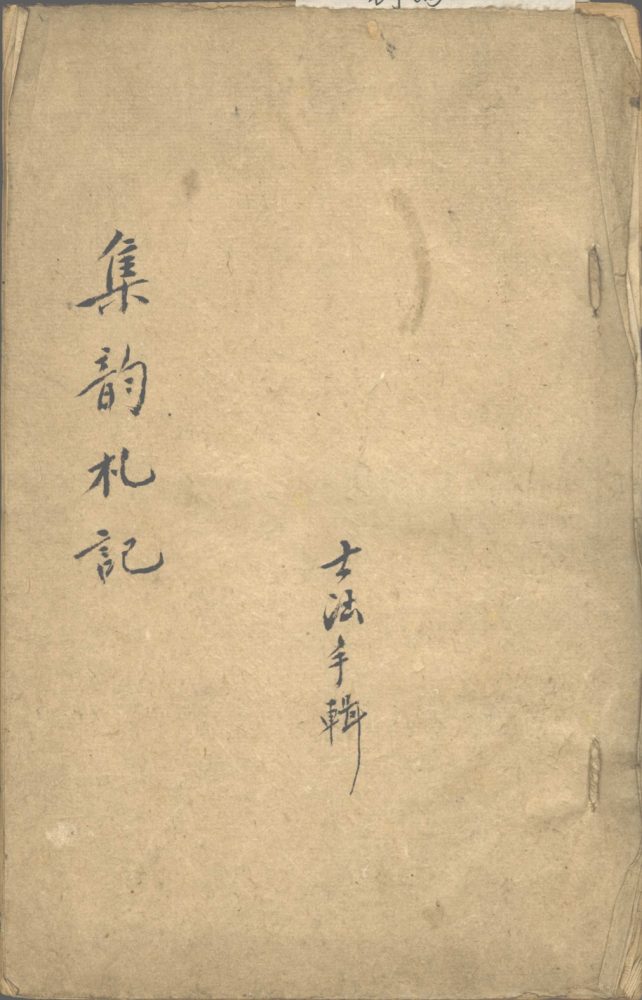 集韵札記
士法手輯